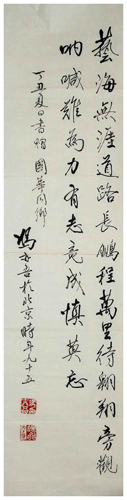 藝海無涯道路長鵬程萬里待翱翔旁觀
吶喊難為力有志竟成慎莫忘
丁丑夏日書贈國華同鄉
於北京時年九十五